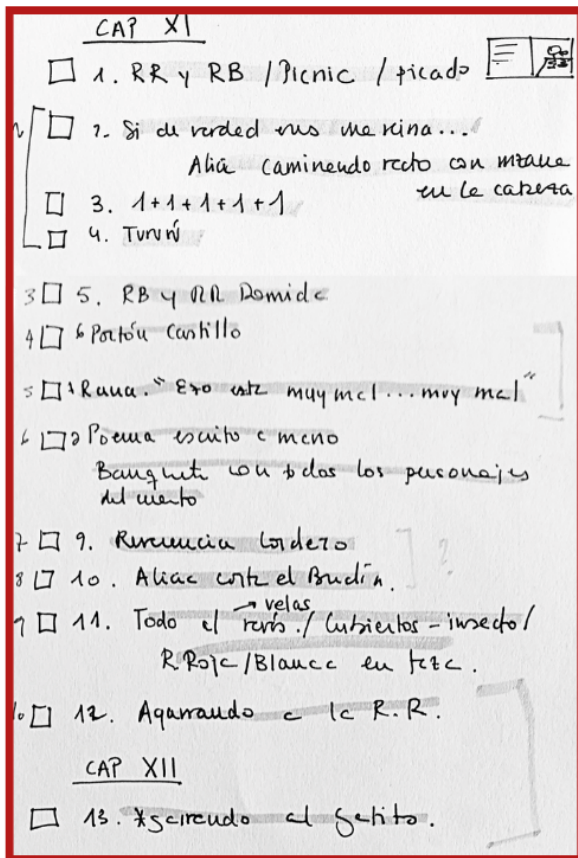 CAP XI
1. RR y RB / Picnic / picado
2. Si de verdad eres una reina...
Alicia caminando recto con
en la cabeza
3. 1+1+1+1+1+1
4. Tururú
3 5. RB y RR Dormida
4 6 Portón Castillo
5 7 Rana. "Eso está muy mal... muy mal"
6 8 Poema escrito a mano
Banquete con todos los personajes
del cuento
7 9. Reverencia Cordero
? 
8 10. Alicia corta el Budín.
→ velas
9 11. Todo al revés / Cubiertos - insecto /
R. Roja / Blanca en taza.
10 12. Agarrando a la R.R.
CAP XII
13. al Gatito.